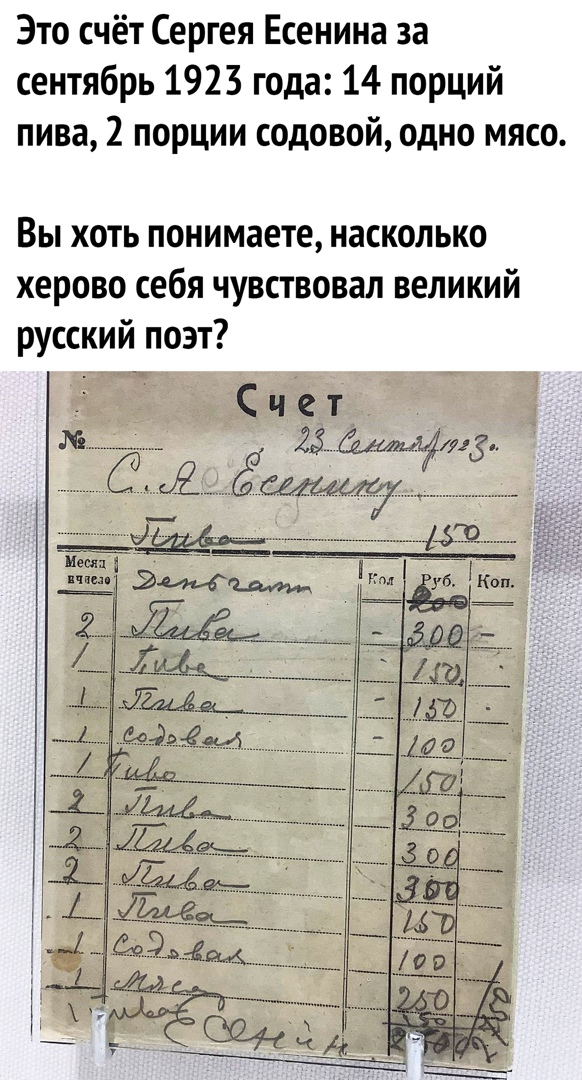 Это счёт Сергея Есенина за
сентябрь 1923 года: 14 порций
пива, 2 порции содовой, одно мясо.
Вы хоть понимаете, насколько
херово себя чувствовал великий
русский поэт?
Счет
№ 23 Сентяб 1923г.
С. А Есенину
Пива 150
Месяц и число Деньгами Кол Руб. Коп.
200
2 Пива - 300 -
1 Пива - 150
1 Пива - 150
1 содовая - 100
1 Пиво 150
2 Пива 300
2 Пива 300
2 Пива 300
1 Пива 150
1 Содовая 100
1 Мясо 250
1 Пиво 150
Есенин